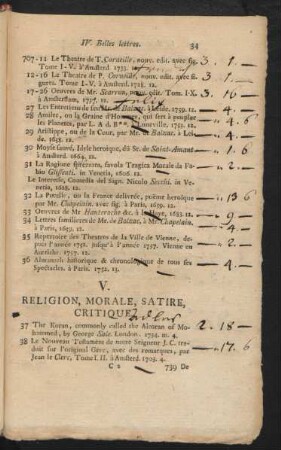 IV. Belles lettres. 34
707-11 Le Theatre de T. Corneille, nouv. edit. avec fig. 3. 1 —
Tome I-V. à Amsterd. 1733.
12-16 Le Theatre de P. Corneille, nouv. edit. avec fi- 3. 1 —
gures. Tome I-V. à Amsterd. 1733. 12.
17-26 Oeuvres de Mr. Scarron, nouv. edit. Tom. I-X. 3. 16 —
à Amsterdam, 1737. 12.
27 Les Entretiens de feu Mr. de Balzac, à Leide, 1659. 12. — 4. —
28 Amilec, ou la Graine d'Hommes, qui sert à peupler — 4. 6
les Planetes, par L. A. d. B** à Lunéville, 1753. 12.
29 Aristipe, ou de la Cour, par Mr. de Balzac, à Lei- — 4. —
de. 1658. 12.
30 Moyse sauvé, Idyle heroique, du Sr. de Saint-Amant — 1. 6
à Amsterd. 1664. 12.
31 La Ragione sprezzata, favola Tragica Morale de Fa- — 2. —
bio Glissenti. in Venetia, 1606. 12.
Le Intervole, Comedia del Sign. Nicolo Secchi. in Ve-
netia, 1628. 12.
32 La Pucelle, ou la France delivrée, poëme heroique — 13 6
par Mr. Chapelain. avec fig. à Paris, 1656. 12.
33 Oeuvres de Mr. — 9 —
34 Lettres familieres de Mr. de Balzac, à Mr. Chapelain. — 4. —
à Paris, 1659. 12.
35 Repertoire des Theatres de la Ville de Vienne, de-
puis l'année 1752. jusqu'à l'année 1757. Vienne en
Autriche. 1757. 12.
36 Almanach historique & chronologique de tous les — 4. —
Spectacles. à Paris. 1752. 12.
V.
RELIGION, MORALE, SATIRE,
CRITIQUE.
37 The Koran, commonly called the Alcoran of Mo- 2. 18 —
hammed, by George Sale. London. 1734. m. 4.
38 Le Nouveau Testament de notre Seigneur J. C. tra- — 17. 6
duit sur l'original Grec, avec des remarques, par
Jean le Clerc, Tome I. II. à Amsterd. 1703. 4.
C 2 739 De